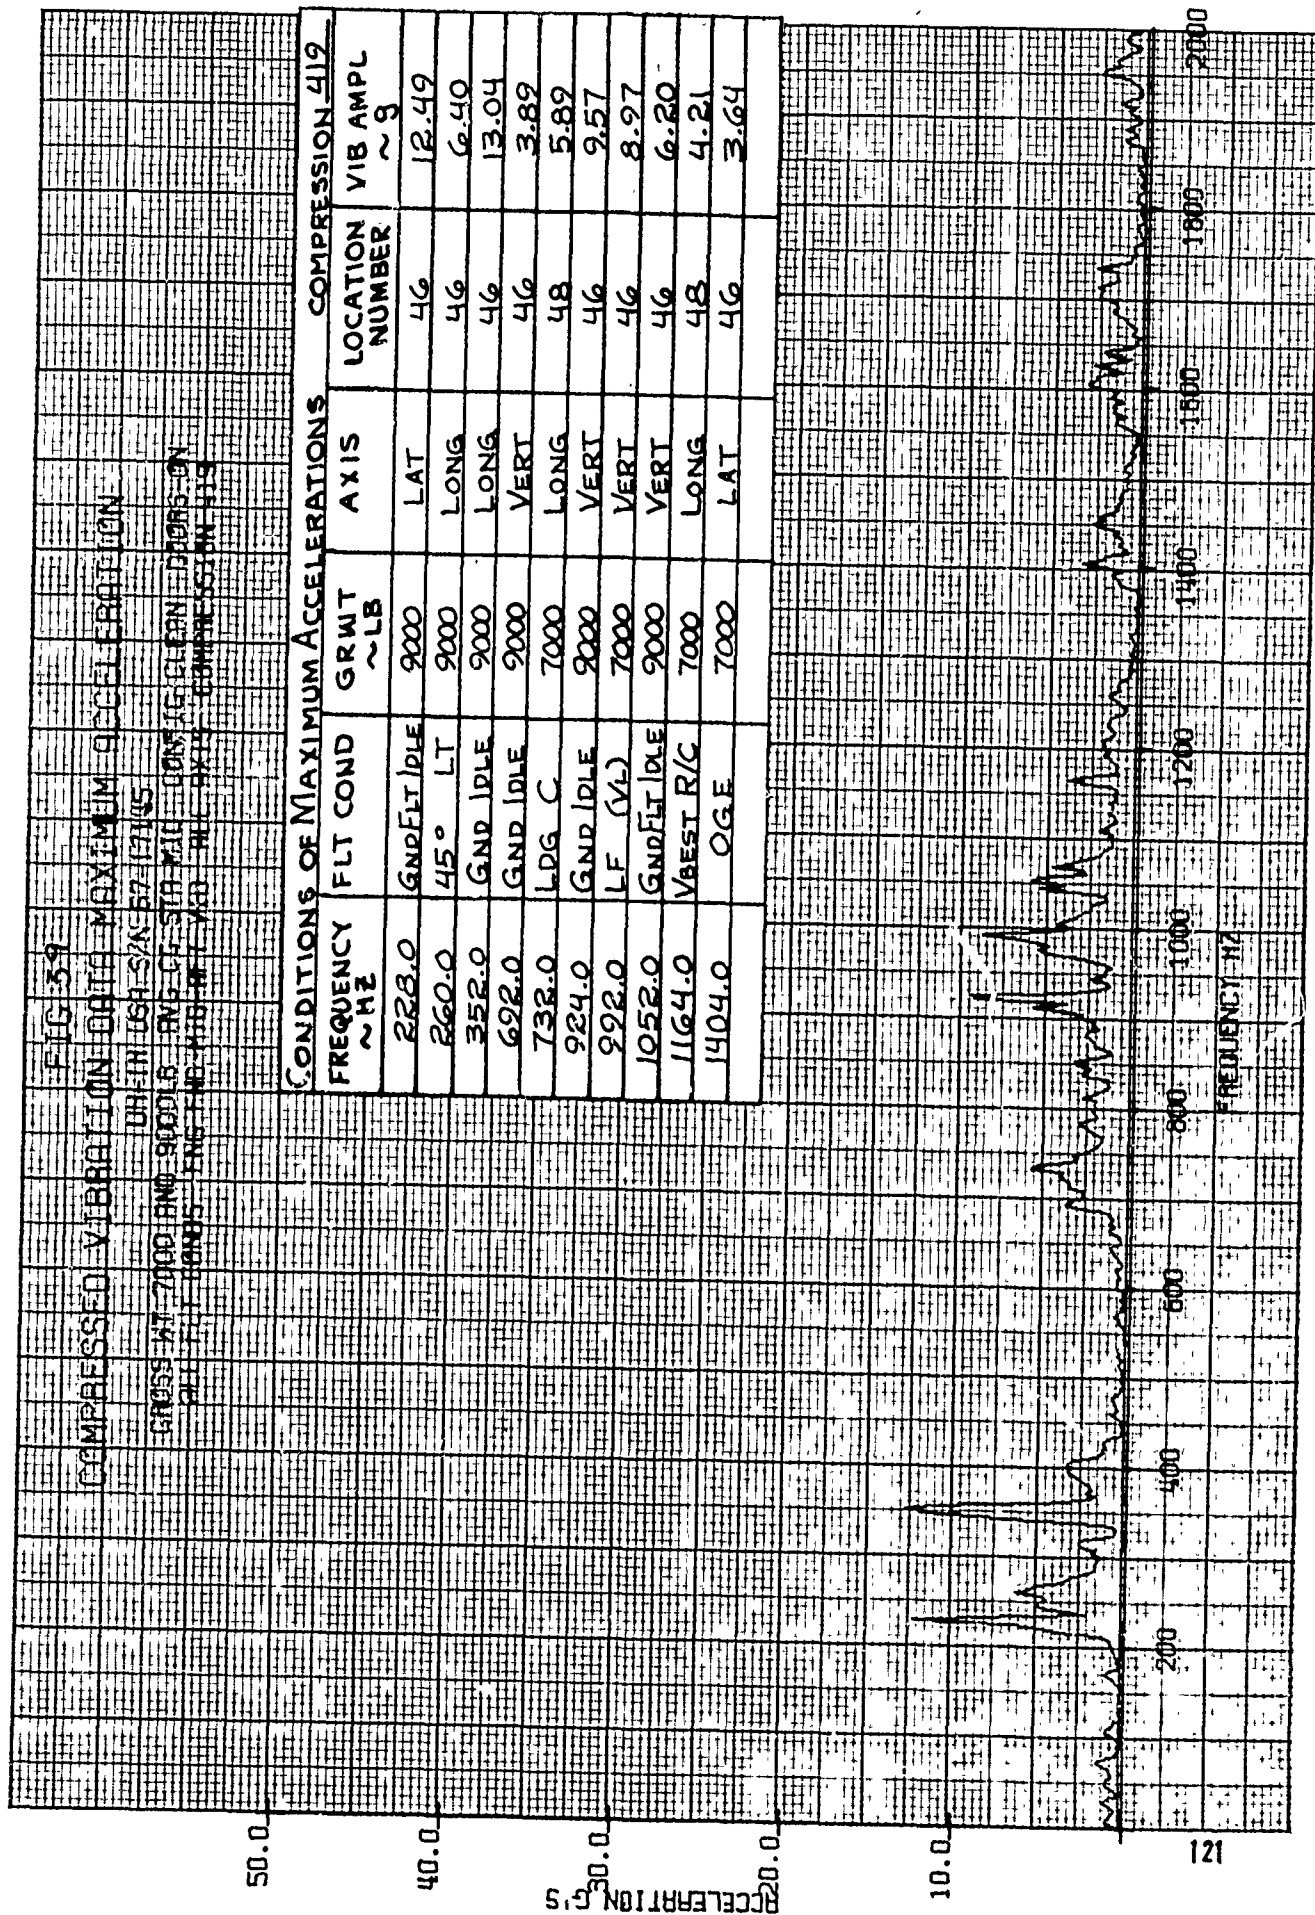 FIG 59
COMPRESSED VIBRATION DATA MAXIMUM ACCELERATION
UH-1H USA S/N 67-17145
GROSS WT 7000 AND 9000LB AVG CG STA MID CONFIG CLEAN DOORS ON
ALL FLT CONDS ENG FND MID AFT VIB ALL AXIS COMPRESSION 419
CONDITIONS OF MAXIMUM ACCELERATIONS COMPRESSION 419
FREQUENCY ~HZ FLT COND GRWT ~LB AXIS LOCATION NUMBER VIB AMPL ~g
228.0 GNDFLTIDLE 9000 LAT 46 12.49
260.0 45° LT 9000 LONG 46 6.40
352.0 GND IDLE 9000 LONG 46 13.04
692.0 GND IDLE 9000 VERT 46 3.89
732.0 LDG C 7000 LONG 48 5.89
924.0 GND IDLE 9000 VERT 46 9.57
992.0 LF (VL) 7000 VERT 46 8.97
1052.0 GNDFLTIDLE 9000 VERT 46 6.20
1164.0 VBEST R/C 7000 LONG 48 4.21
1404.0 OGE 7000 LAT 46 3.64
ACCELERATION G'S
50.0
40.0
30.0
20.0
10.0
200 400 600 800 1000 1200 1400 1600 1800 2000
FREQUENCY HZ
121